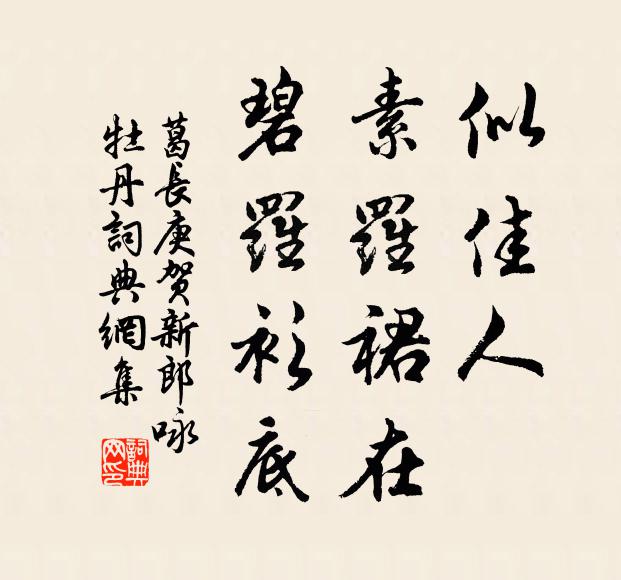 似佳人
素羅裙在
碧羅衫底
葛長庚賀新郎咏
牡丹詞典網集
詞典
网印